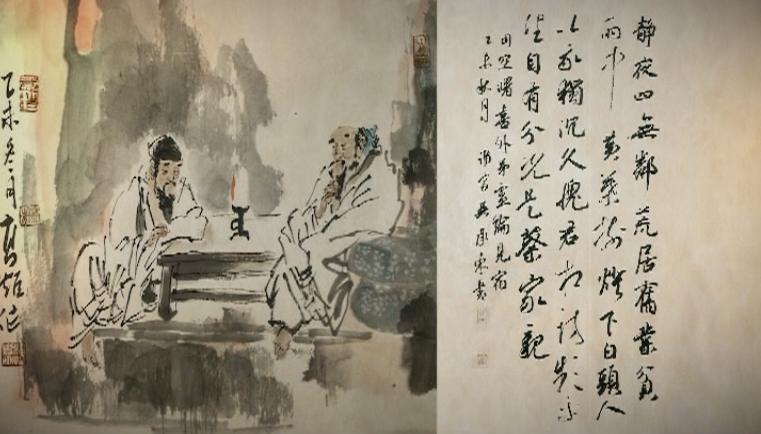 靜夜四無鄰荒居舊業貧
雨中黃葉樹燈下白頭人
以我獨沉久愧君相訪頻平
生自有分況是蔡家親
司空曙喜外弟盧綸見宿
乙未秋月
乙未冬月